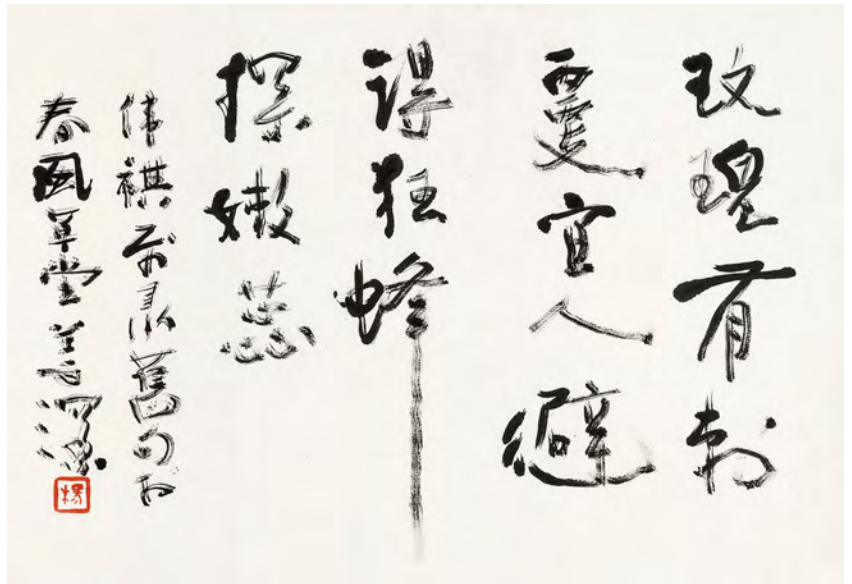 玫瑰有刺
宜人避
得狂蜂
探嫩蕊
偉祺舊句於
春風草堂善深
楊